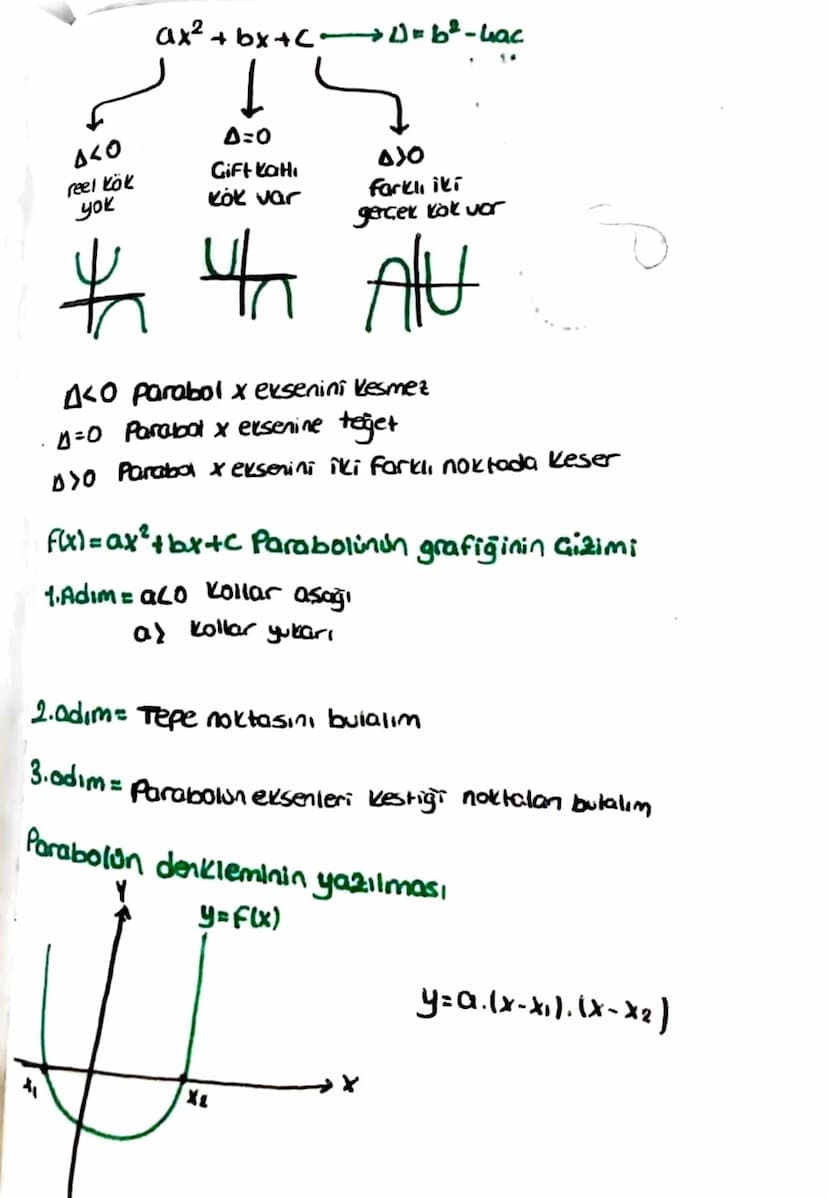 ax² + bx + c → Δ = b² - 4ac
Δ<0
reel kök
yok
Δ=0
Çift katlı
kök var
Δ>0
farklı iki
gerçek kök var
Δ<0 parabol x eksenini kesmez
Δ=0 Parabol x eksenine teğet
Δ>0 Parabol x eksenini iki farklı noktada keser
f(x)=ax²+bx+c Parabolünün grafiğinin Çizimi
1.Adım= a<0 kollar aşağı
a> kollar yukarı
2.adım= Tepe noktasını bulalım
3.adım= Parabolün eksenleri kestiği noktaları bulalım
Parabolün denkleminin yazılması
y
y=f(x)
y=a.(x-x₁).(x-x₂)
x₁
x₂
x